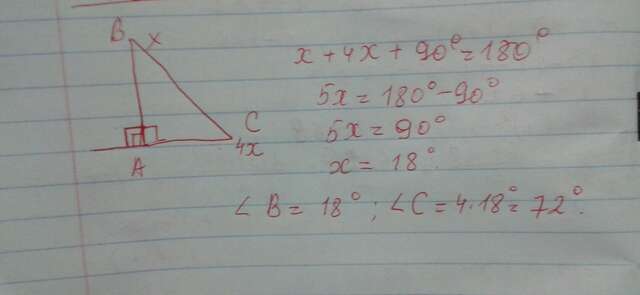 B x
C
4x
A
x + 4x + 90° = 180°
5x = 180° - 90°
5x = 90°
x = 18°.
∠ B = 18° ; ∠ C = 4 · 18° = 72°.